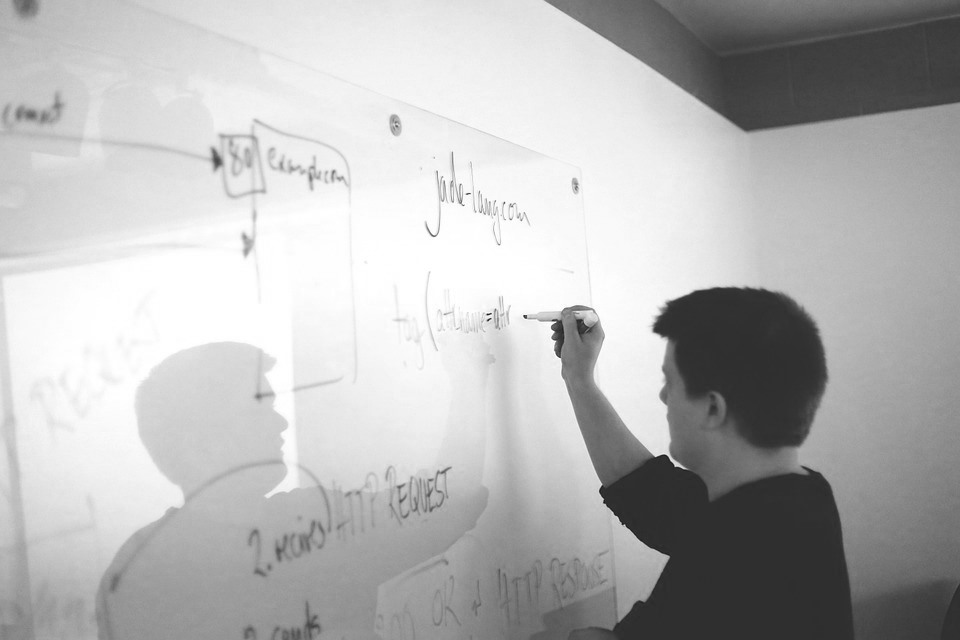 80 example.com
jade-lang.com
tag(attr.name=attr
REQUEST
2. receives HTTP REQUEST
OK + HTTP RESPONSE
2. sends